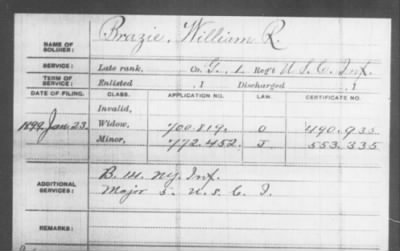 Brazie, William R.
NAME OF SOLDIER:
SERVICE: Late rank, Co. G, 1 Reg't U S C Inf.
TERM OF SERVICE: Enlisted , 1 Discharged , 1
DATE OF FILING. CLASS. APPLICATION NO. LAW. CERTIFICATE NO.
Invalid,
1899 Jan. 23. Widow, 700.819. 490.933
Minor, 772.452. 553.335
ADDITIONAL SERVICES: B. 14. N.Y. Inf.
Major 5. U. S. C. I.
REMARKS: